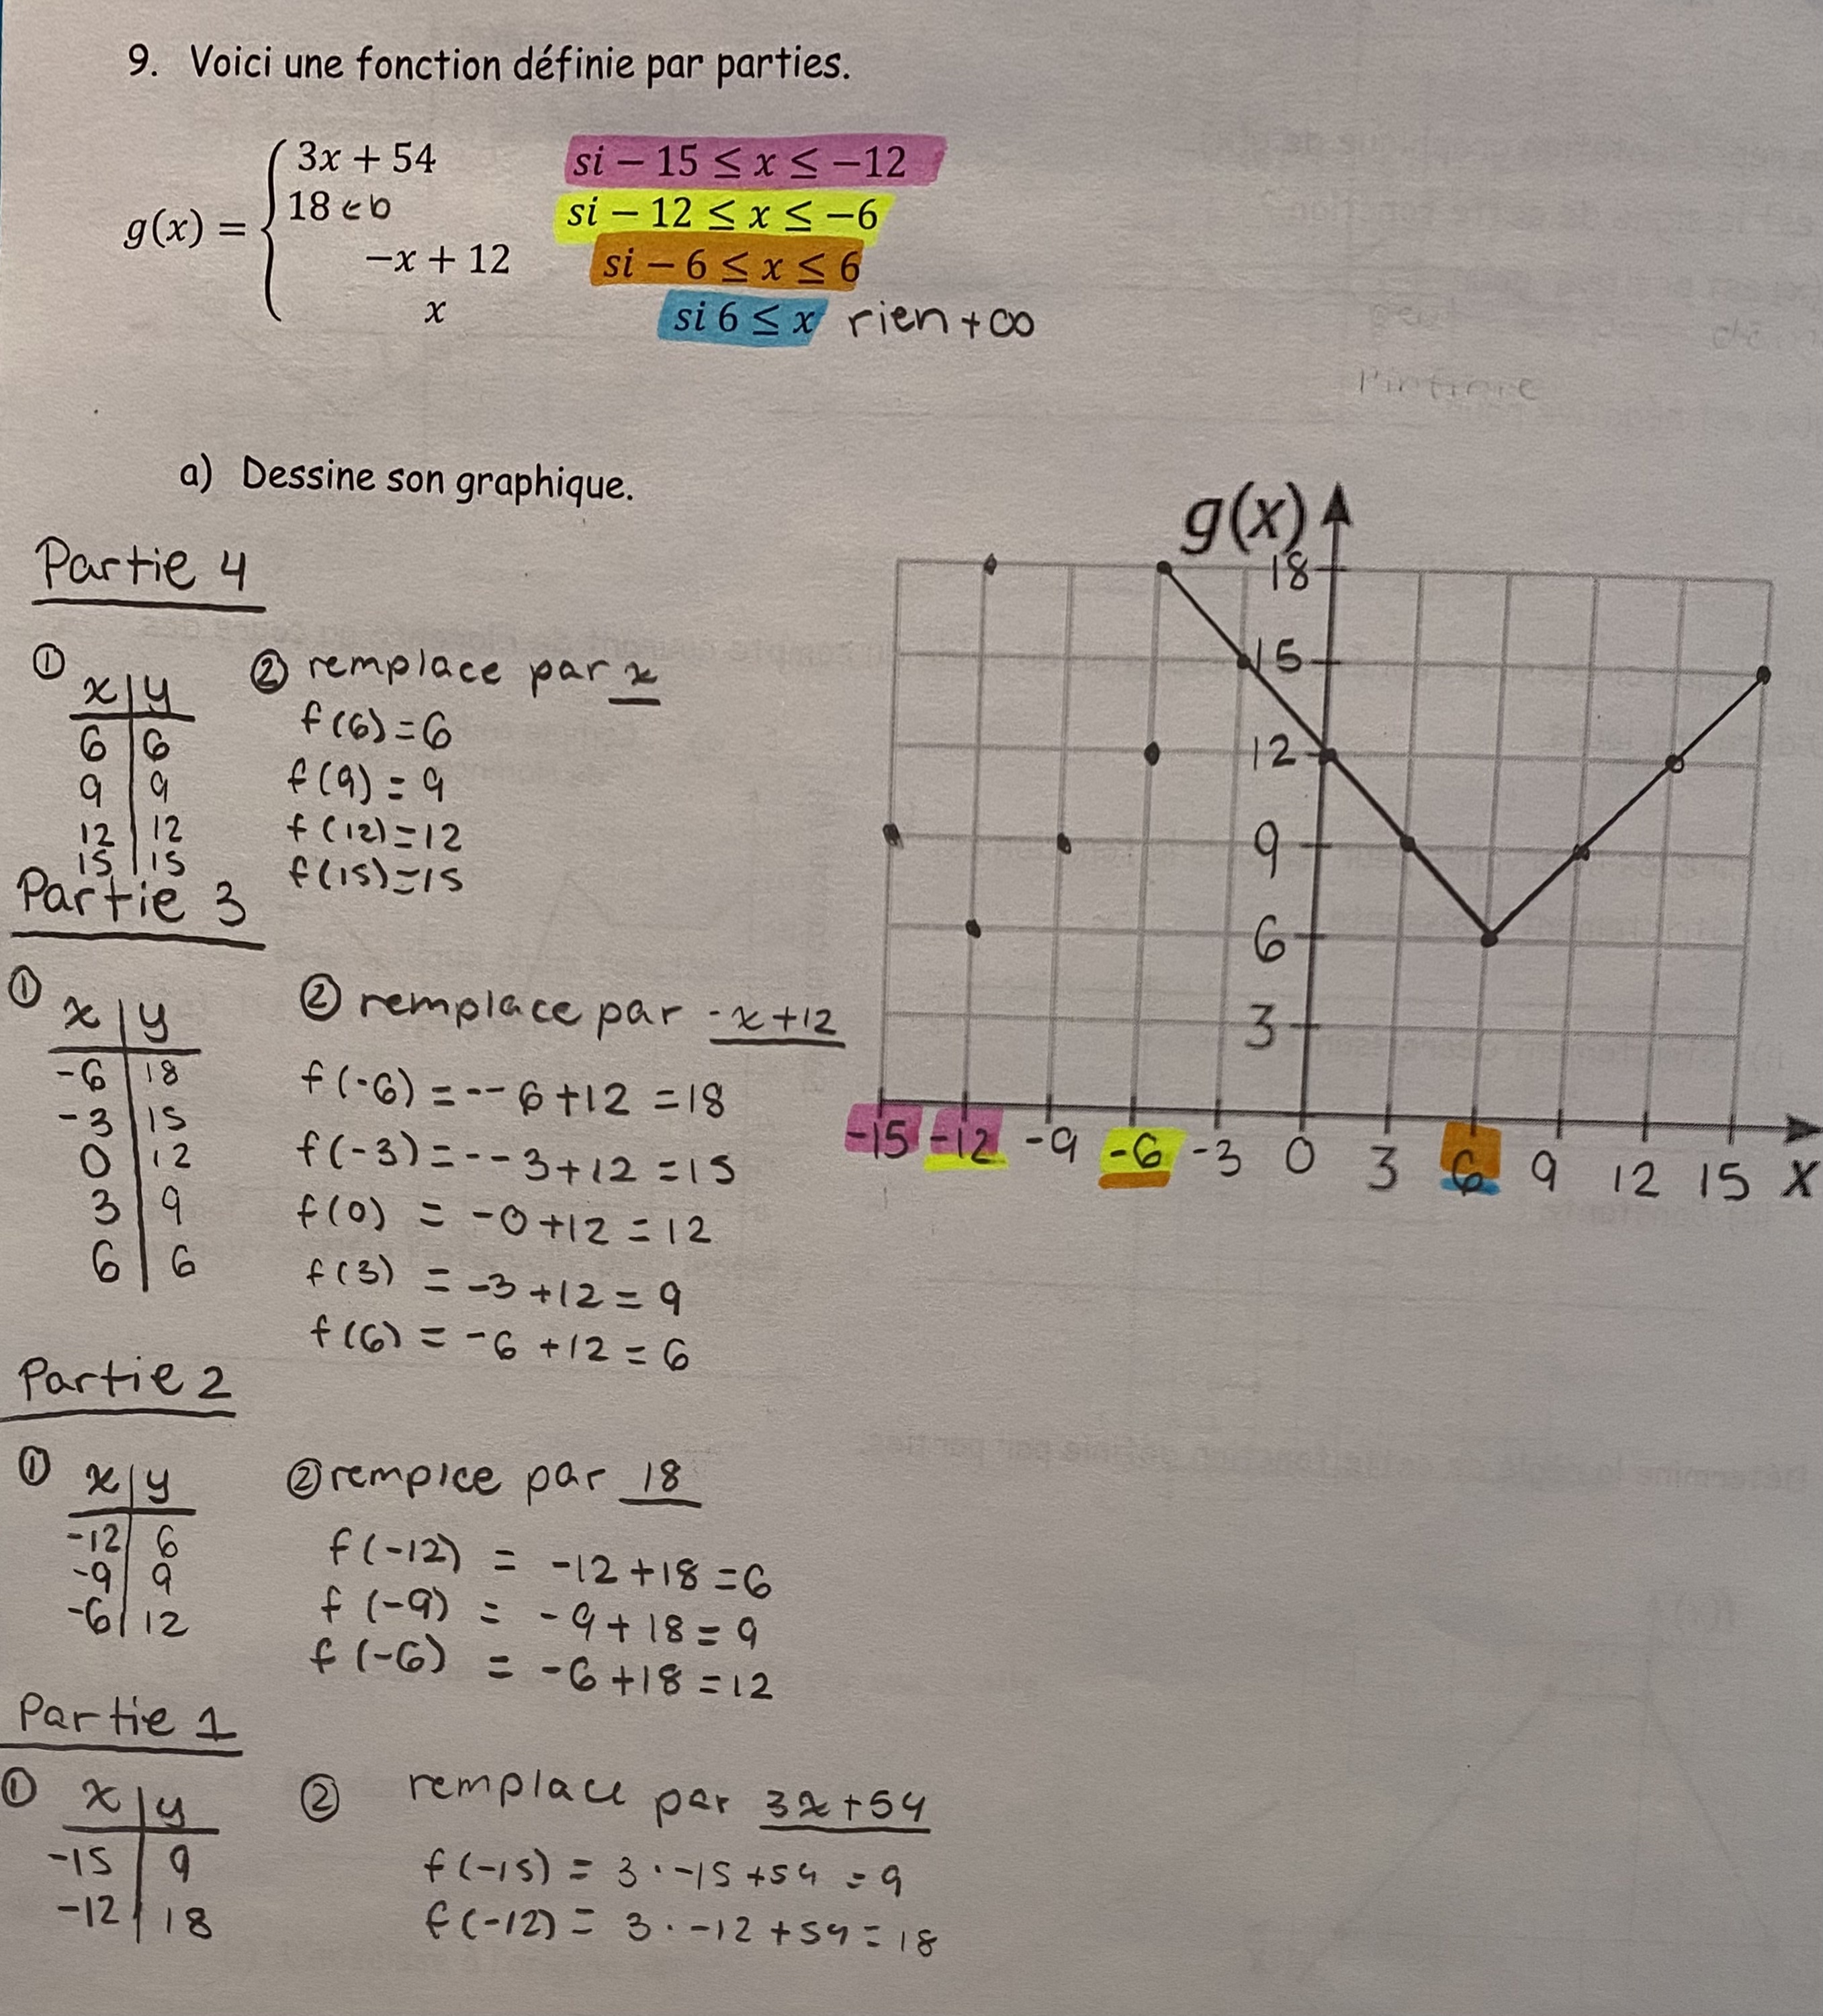 9. Voici une fonction définie par parties.
g(x) =
3x + 54 si − 15 ≤ x ≤ −12
18 ← b si − 12 ≤ x ≤ −6
−x + 12 si − 6 ≤ x ≤ 6
x si 6 ≤ x rien +∞
l'infinie
a) Dessine son graphique.
Partie 4
① x | y
6 | 6
9 | 9
12 | 12
15 | 15
② remplace par x
f(6)=6
f(9) = 9
f(12)=12
f(15)=15
Partie 3
① x | y
-6 | 18
-3 | 15
0 | 12
3 | 9
6 | 6
② remplace par -x+12
f(-6) = --6+12 =18
f(-3) = --3+12 =15
f(0) = -0+12 = 12
f(3) = -3+12 = 9
f(6) = -6 +12 = 6
Partie 2
① x | y
-12 | 6
-9 | 9
-6 | 12
② remplce par 18
f(-12) = -12+18 =6
f(-9) = -9+18 = 9
f(-6) = -6+18 =12
Partie 1
① x | y
-15 | 9
-12 | 18
② remplace par 3x+54
f(-15) = 3·-15+54 = 9
f(-12) = 3·-12+54 = 18
g(x)
18
15
12
9
6
3
-15 -12 -9 -6 -3 0 3 6 9 12 15 x